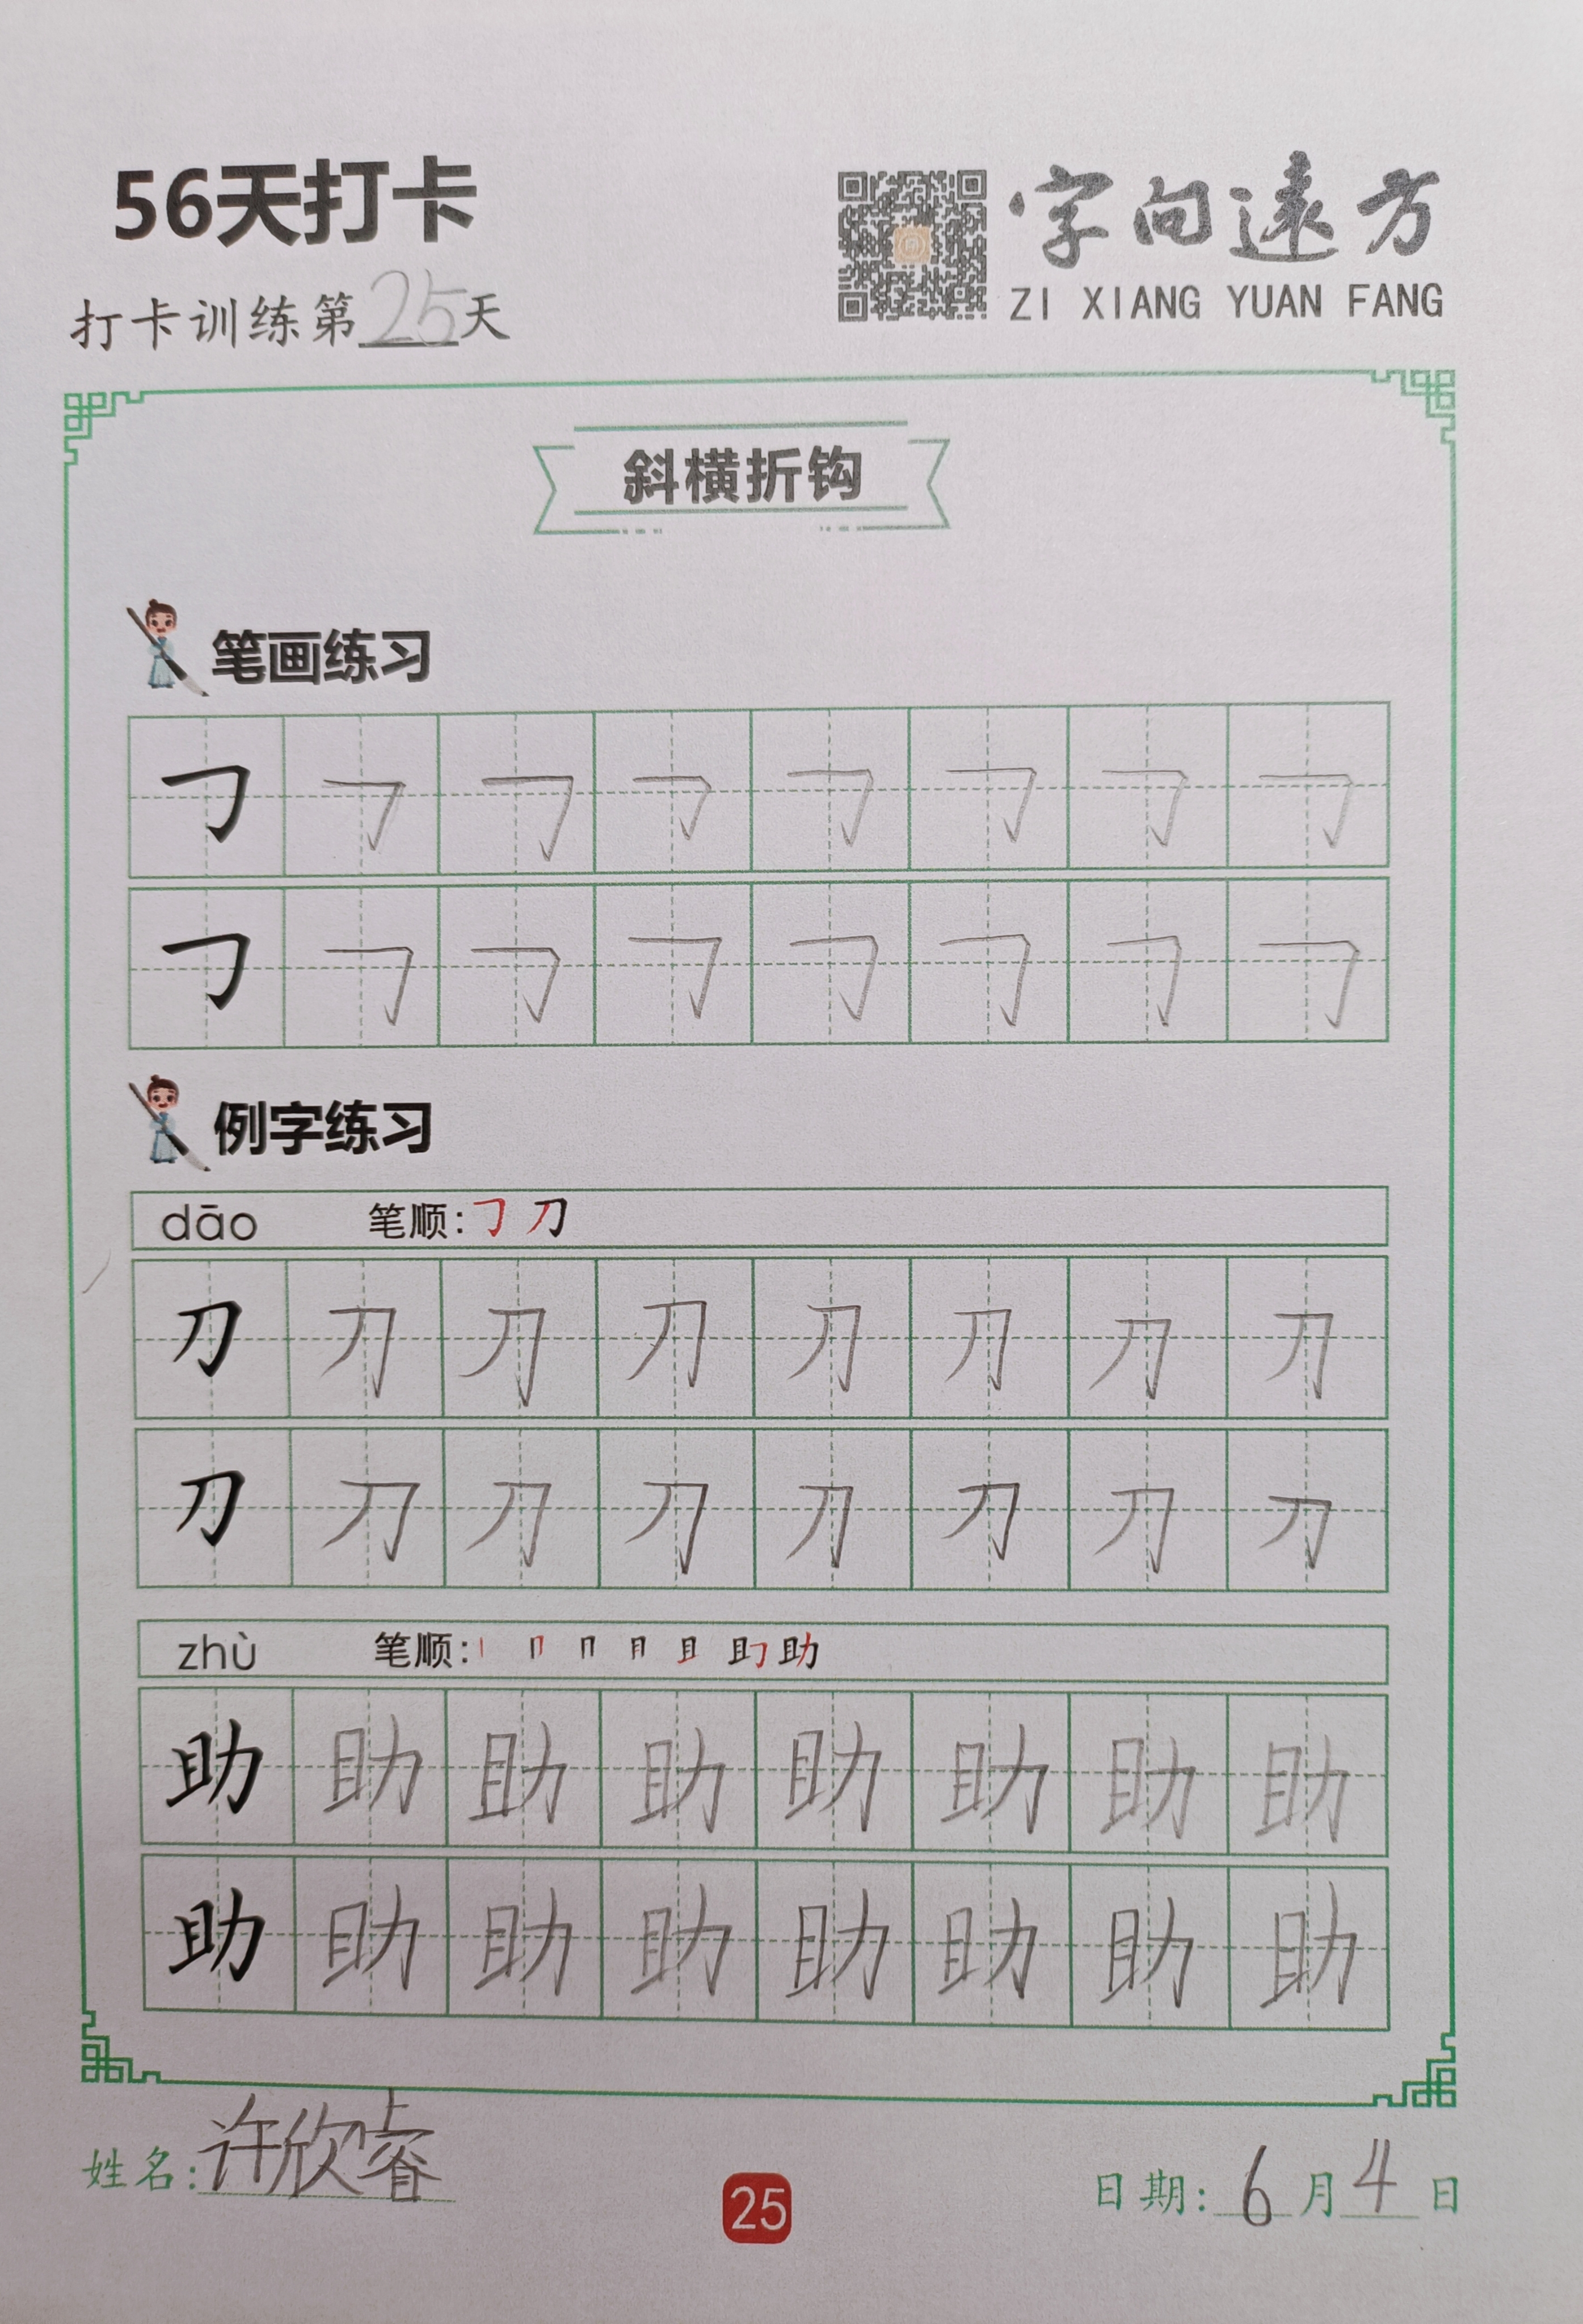 56天打卡
字向遠方
ZI XIANG YUAN FANG
打卡训练第25天
斜横折钩
笔画练习
㇆ ㇆ ㇆ ㇆ ㇆ ㇆ ㇆ ㇆
㇆ ㇆ ㇆ ㇆ ㇆ ㇆ ㇆ ㇆
例字练习
dāo 笔顺: ㇆ 刀
刀 刀 刀 刀 刀 刀 刀 刀
刀 刀 刀 刀 刀 刀 刀 刀
zhù 笔顺: 助
助 助 助 助 助 助 助 助
助 助 助 助 助 助 助 助
姓名: 许欣睿
25
日期: 6月4日